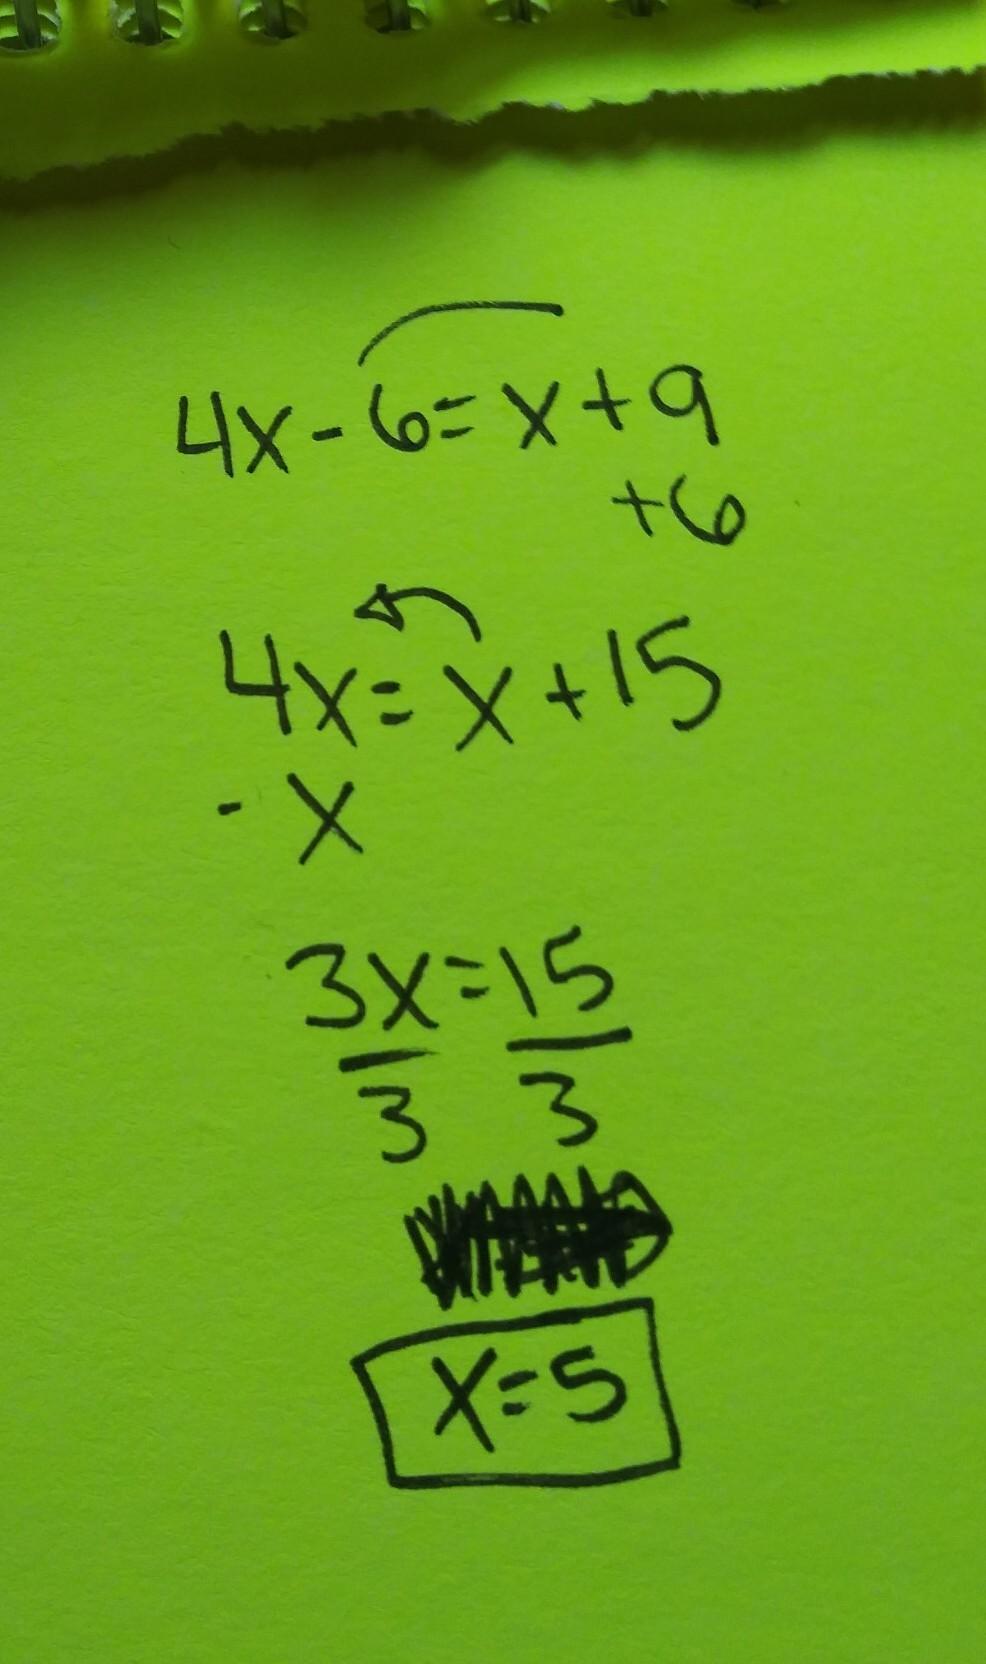 4x-6=x+9
+6
4x=x+15
-x
3x=15
3 3
x=5